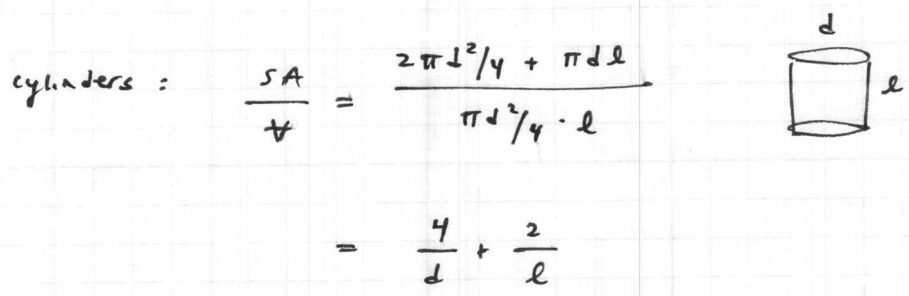 cylinders : SA/V = (2πd²/4 + πdl) / (πd²/4 · l)
= 4/d + 2/l
d
l